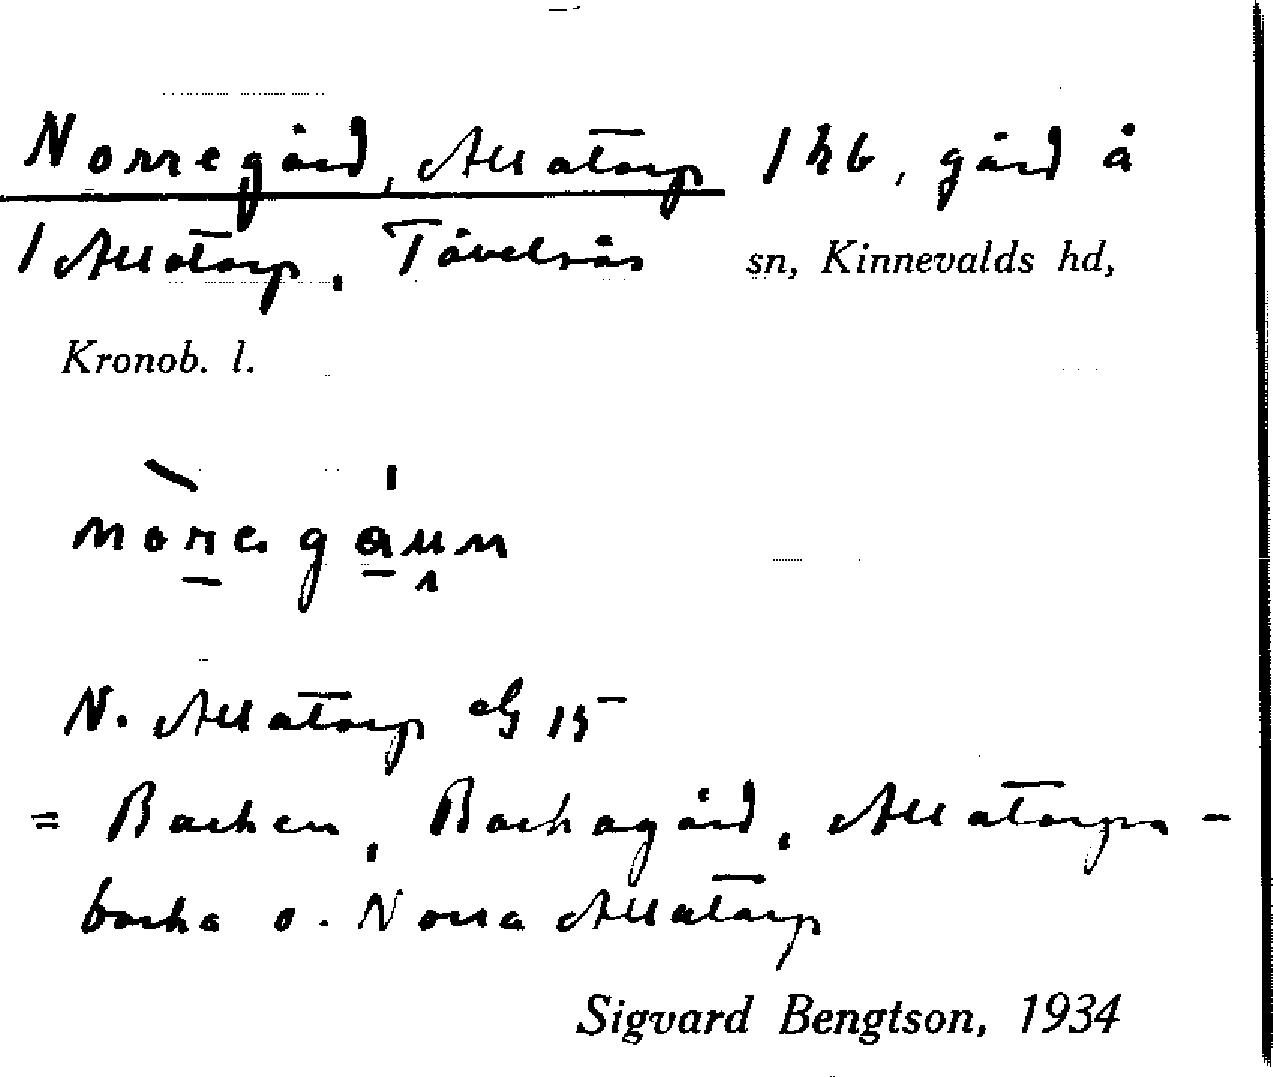 Norregård, Allatorp 1 h6, gård å
1 Allatorp, Tävelsås sn, Kinnevalds hd,
Kronob. l.
nòrregá̱un
N. Allatorp G 15
= Backen, Backagård, Allatorpa-
backa o. Norra Allatorp
Sigvard Bengtson, 1934